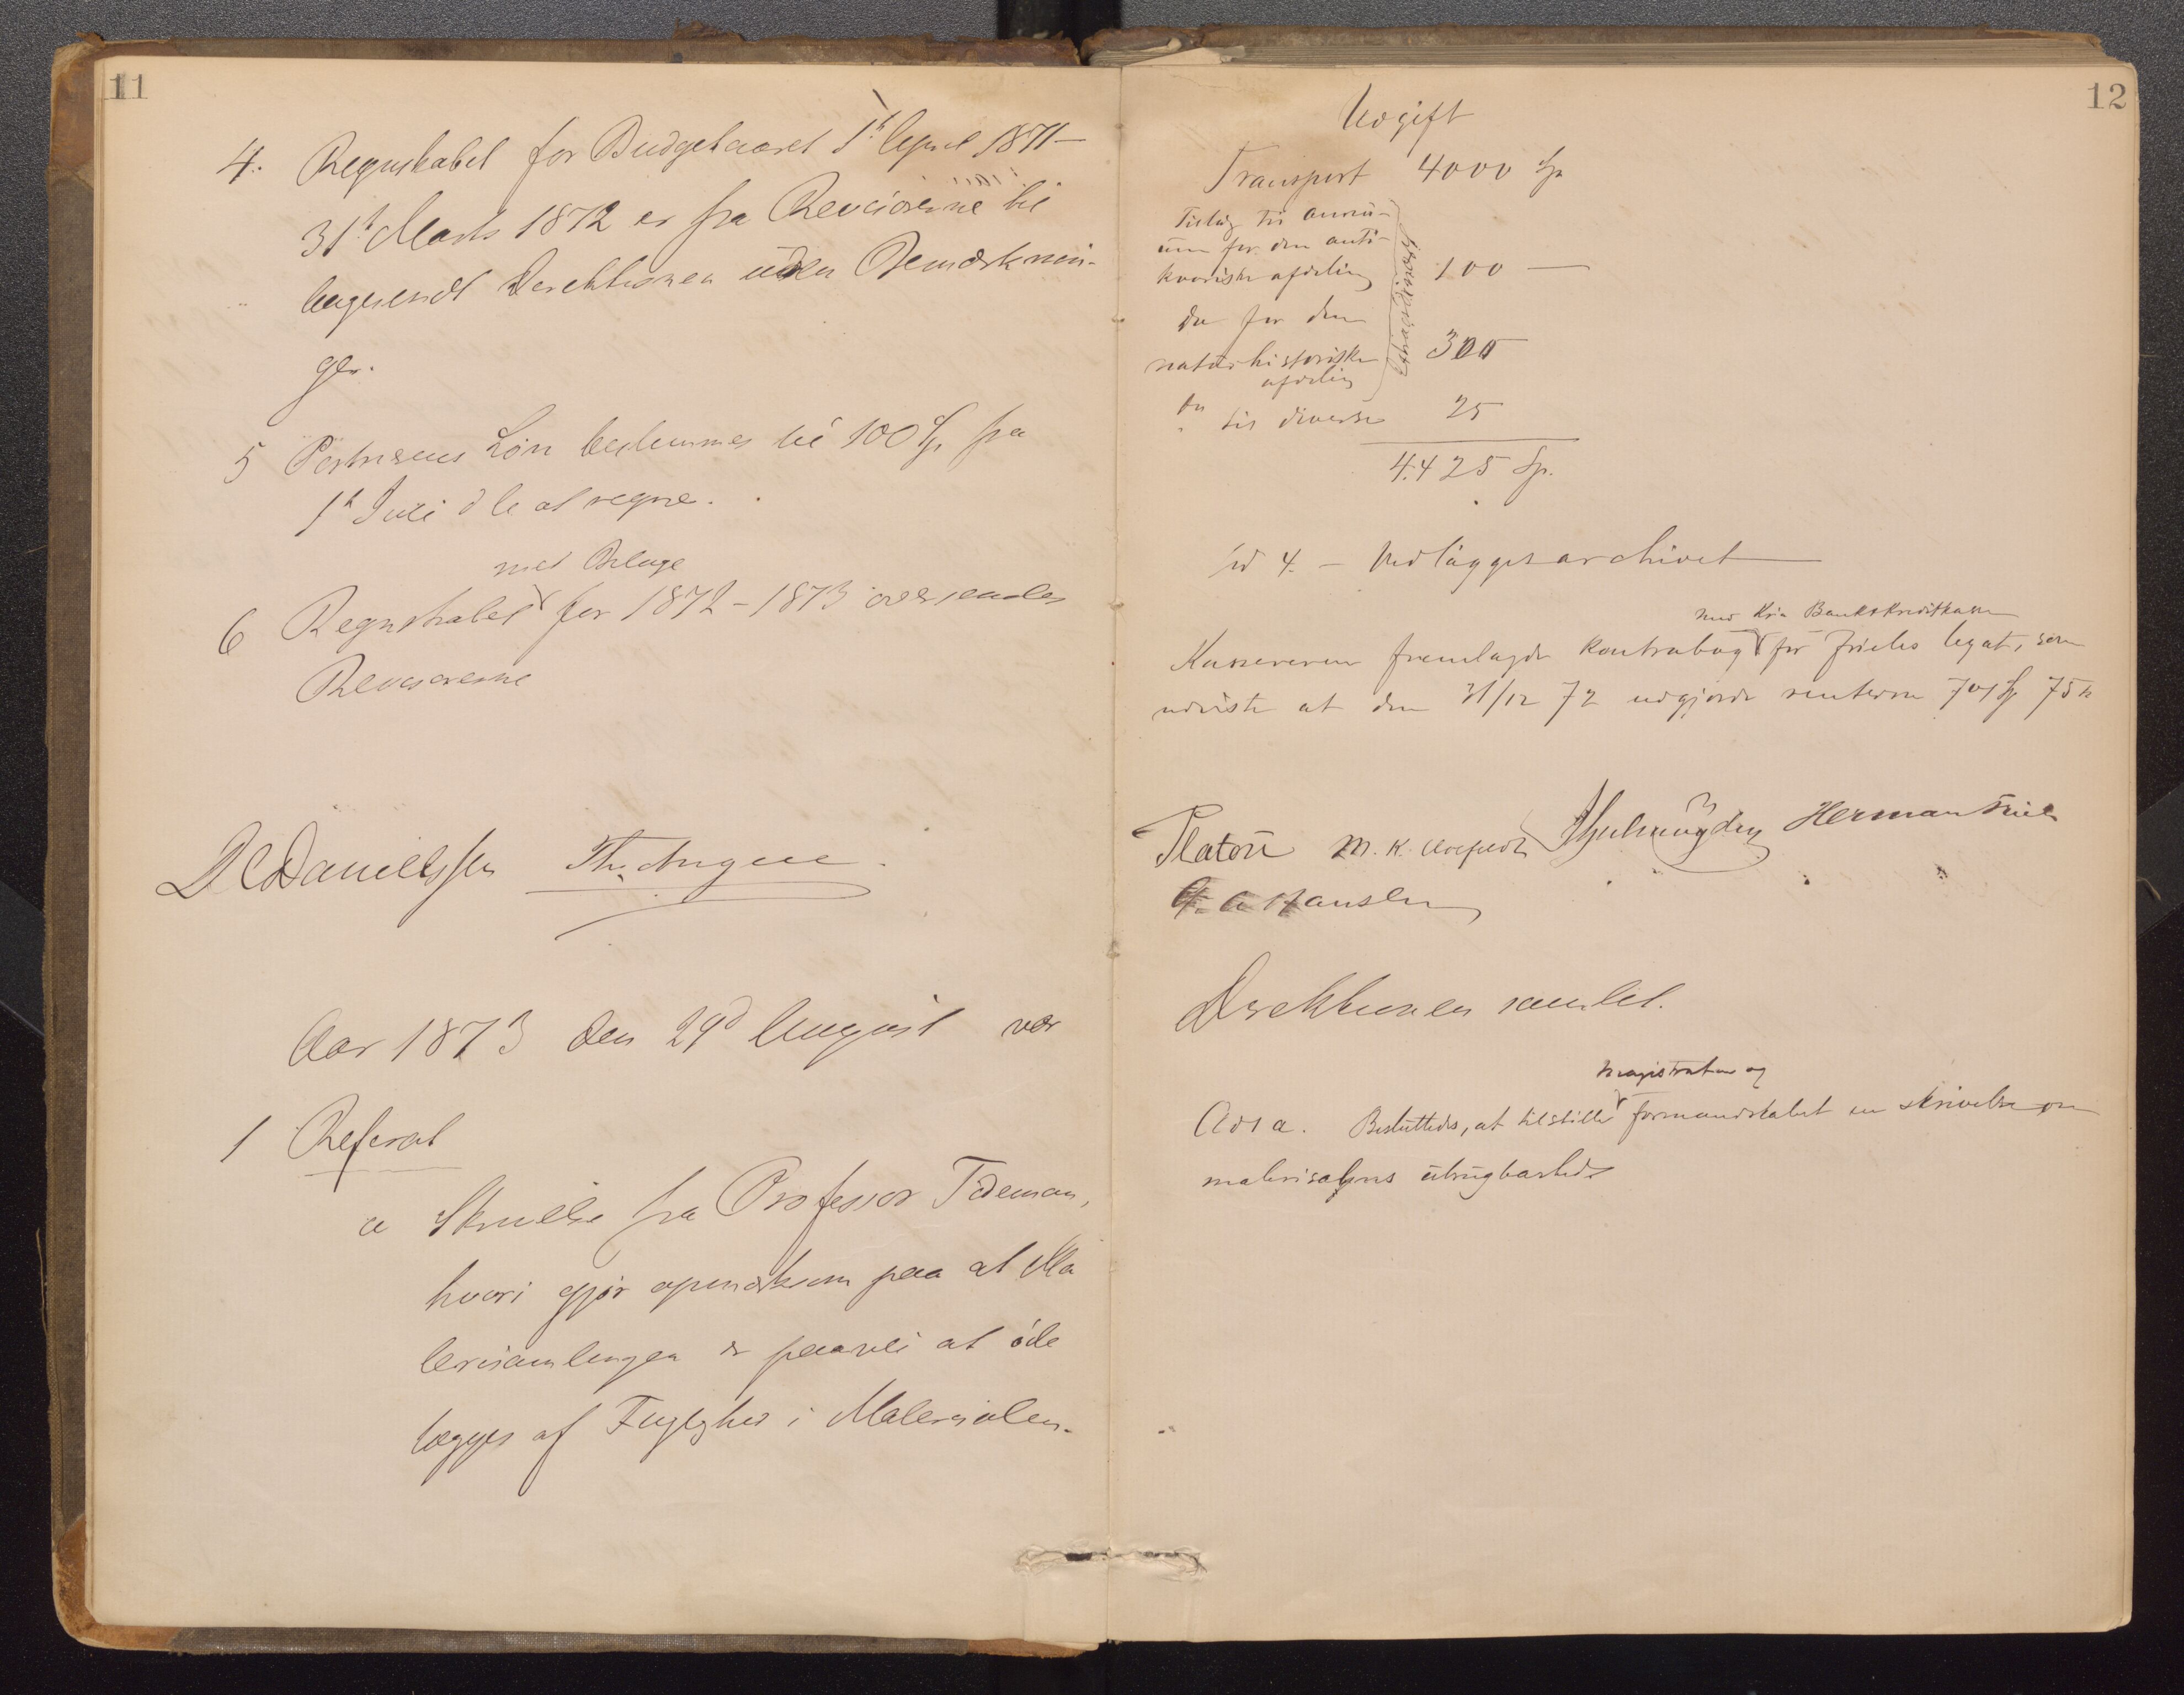 11
4. Regnskabet for Budgetaaret 1ste April 1871–
31te Marts 1872 er fra Revisorerne til
bagesendt Direktionen uden Bemærknin-
ger.
5 Portnerens Løn bestemmes til 100 Sp fra
1ste Juli d A at regne.
med Bilage
6 Regnskabet for 1872–1873 oversendes
Revisorerne
D C Danielssen
Aar 1873 den 29d August var
1 Referat
a Skrivelse fra Professor Tidemann,
hvori gjør opmærksom paa at Ma
lerisamlingen er paavei at øde
lægges af Fugtighed i Malerisalen.
12
Udgift
Transport 4000 Sp
Tillæg til annu-
um for den anti-
kvariske afdeling 100 —
Do for den
naturhistoriske
afdeling 300
extraordinært
Do til diverse 25
4.425 Sp.
Ad 4. – Vedlægges archivet
med Kra Bank & Kreditkasse
Kassereren fremlagde Kontrabog for Frieles legat, som
udviste at den 31/12 72 udgjorde renterne 701 Sp 75 s
Platou M. K. Herman Friele
G. A Hansen
Direktionen samlet.
magistraten og
Ad 1 a. Besluttedes, at tilstille formandskabet en skrivelse om
malerisalens ubrugbarhed